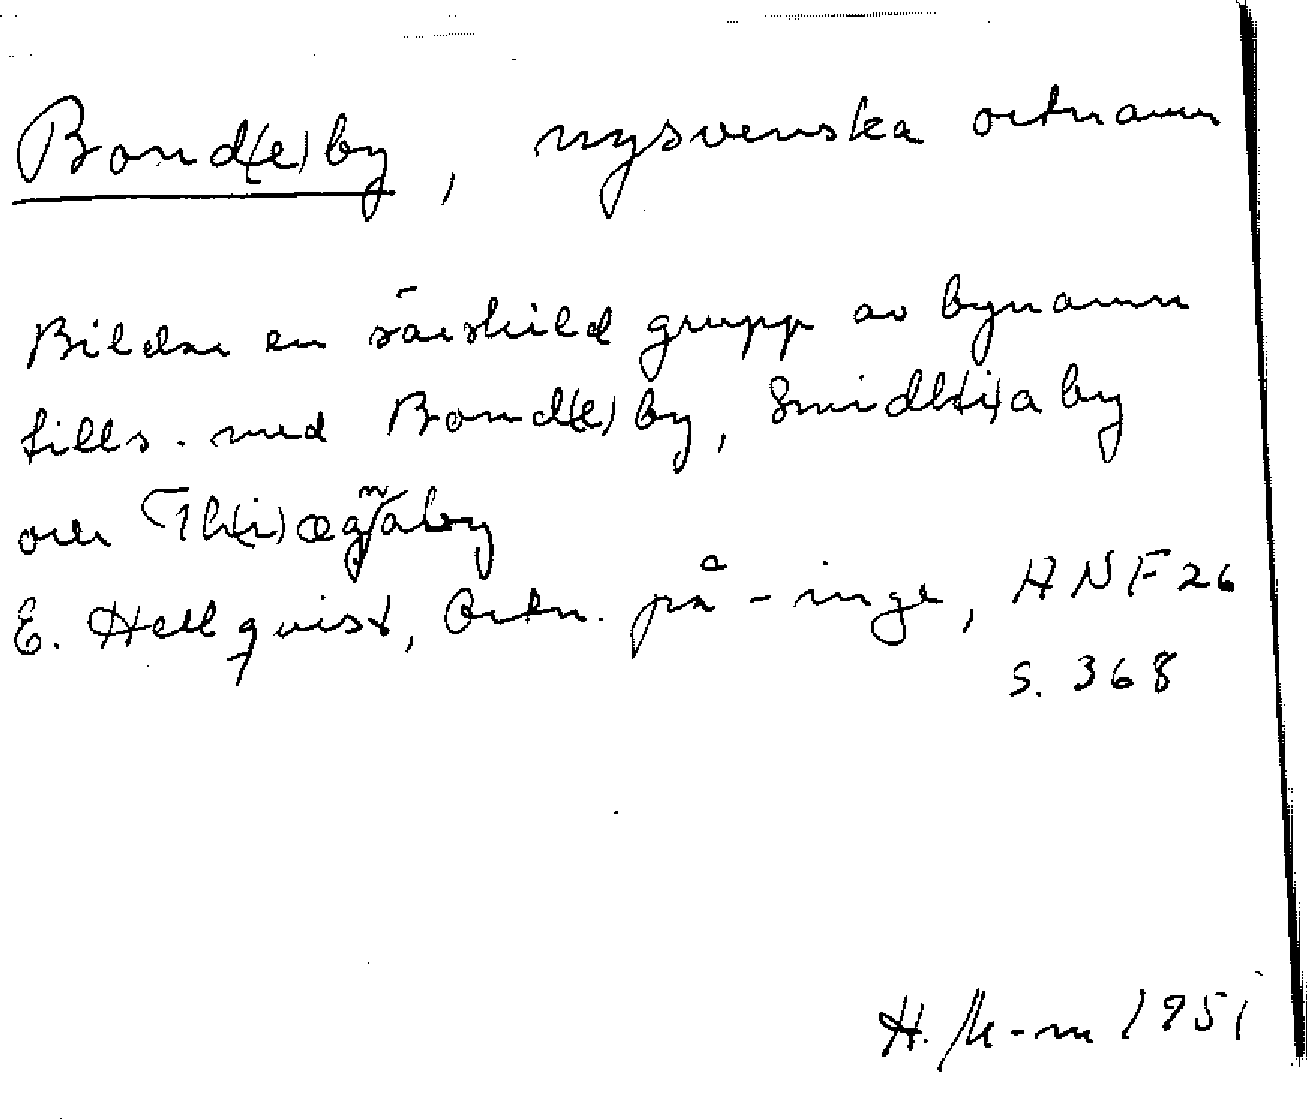 Bond(e)by, nysvenska ortnamn
Bildar en särskild grupp av bynamn
tills. med Bond(e)by, Smidh(i)a by
och Th(i)ægnaby
E. Hellquist, Ortn. på -inge, ANF 26
s. 368
H. 1951